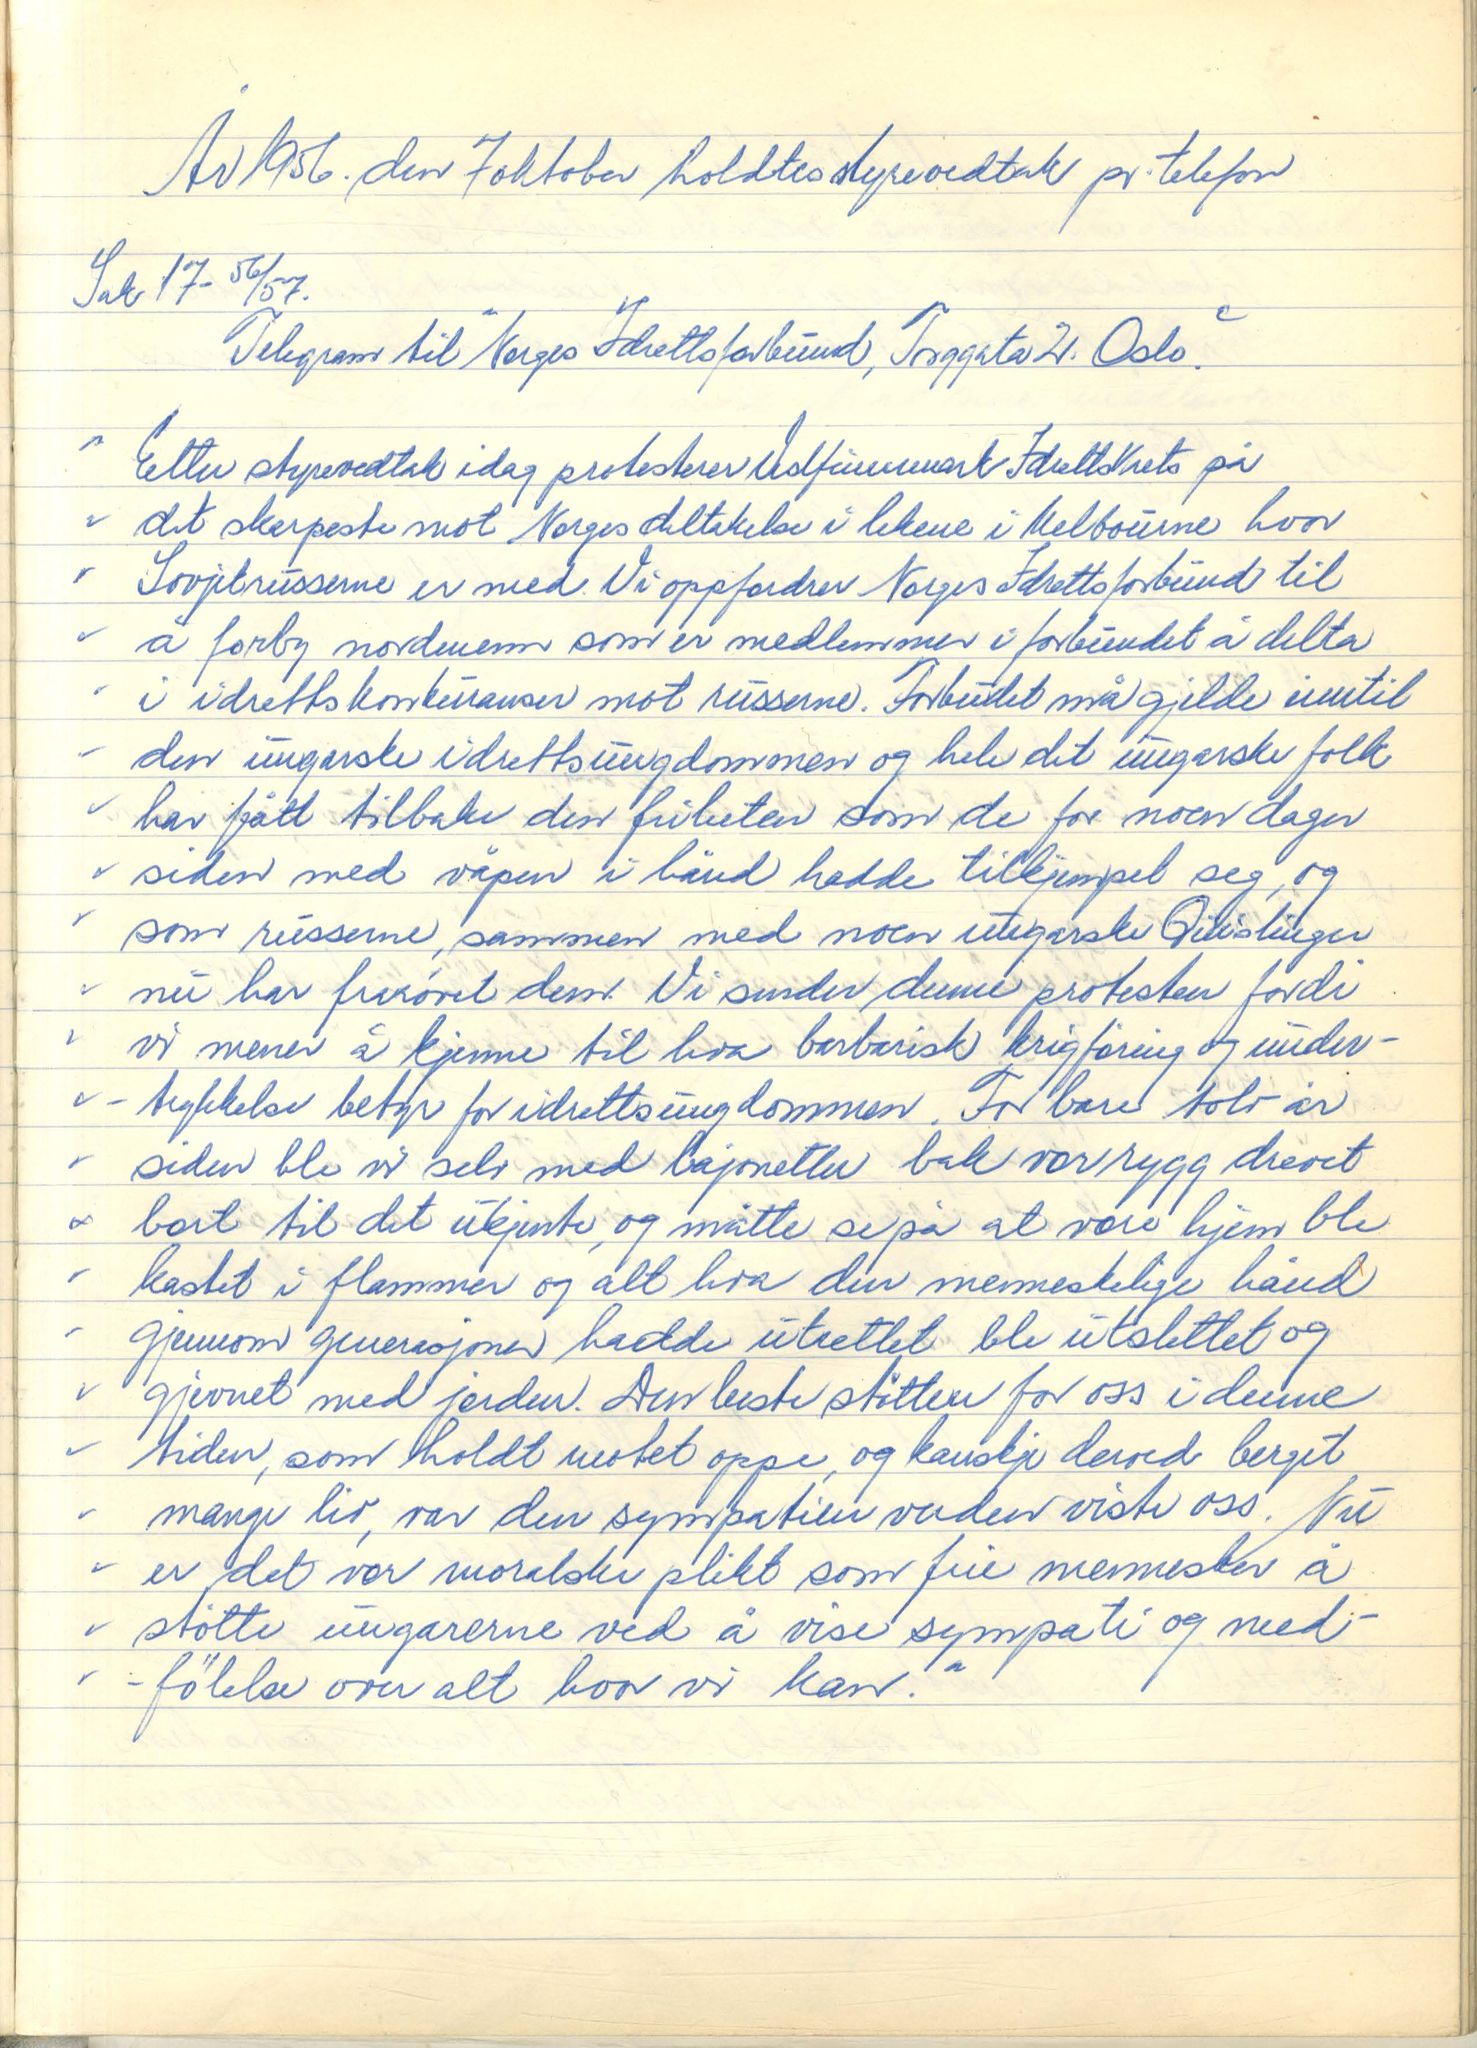 År 1956. den 7 oktober holdtes styrevedtak pr. telefon
Sak 17- 56/57.
Telegram til "Norges Idrettsforbund, Torggata 2. Oslo."
" Etter styrevedtak idag protesterer Vestfinnmark Idrettskrets på
" det skarpeste mot Norges deltakelse i lekene i Melbourne hvor
" Sovjetrusserne er med. Vi oppfordrer Norges Idrettsforbund til
" å forby nordmenn som er medlemmer i forbundet å delta
" i idrettskonkurranser mot russerne. Forbudet må gjelde inntil
" den ungarske idrettsungdommen og hele det ungarske folk
" har fått tilbake den friheten som de for noen dager
" siden med våpen i hånd hadde tilkjempet seg, og
" som russerne, sammen med noen ungarske Quislinger
" nu har frarøvet dem. Vi sender denne protesten fordi
" vi mener å kjenne til hva barbarisk krigföring og under-
" -trykkelse betyr for idrettsungdommen. For bare tolv år
" siden ble vi selv med bajonetter bak vor rygg drevet
" bort til det ukjente, og måtte se på at våre hjem ble
" kastet i flammer og alt hva den menneskelige hånd
" gjennom generasjoner hadde utrettet ble utslettet og
" gjevnet med jorden. Den beste støtten for oss i denne
" tiden, som holdt motet oppe, og kanskje derved berget
" mange liv, var den sympatien verden viste oss. Nu
" er det vor moralske plikt som frie mennesker å
" støtte ungarerne ved å vise sympati og med-
" -fölelse over alt hvor vi kan."